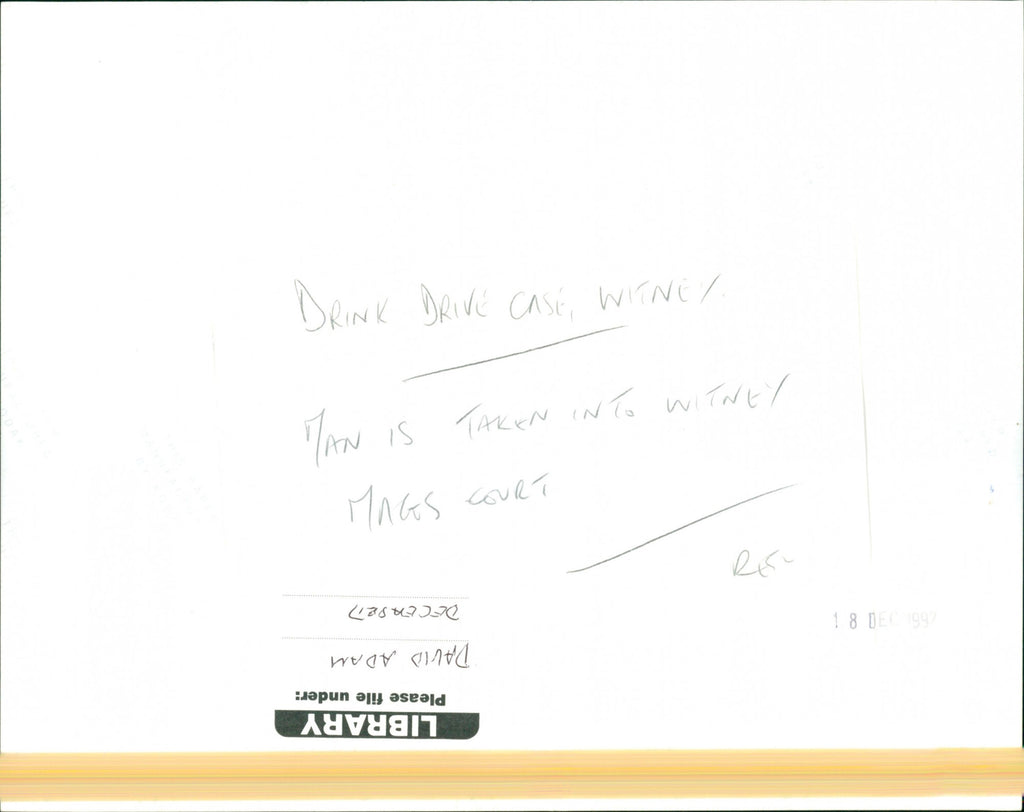 DRINK DRIVE CASE, WITNEY.
MAN IS TAKEN INTO WITNEY
MAGS COURT
18 DEC 1992
LIBRARY
Please file under:
DAVID ADAM
DECEASED